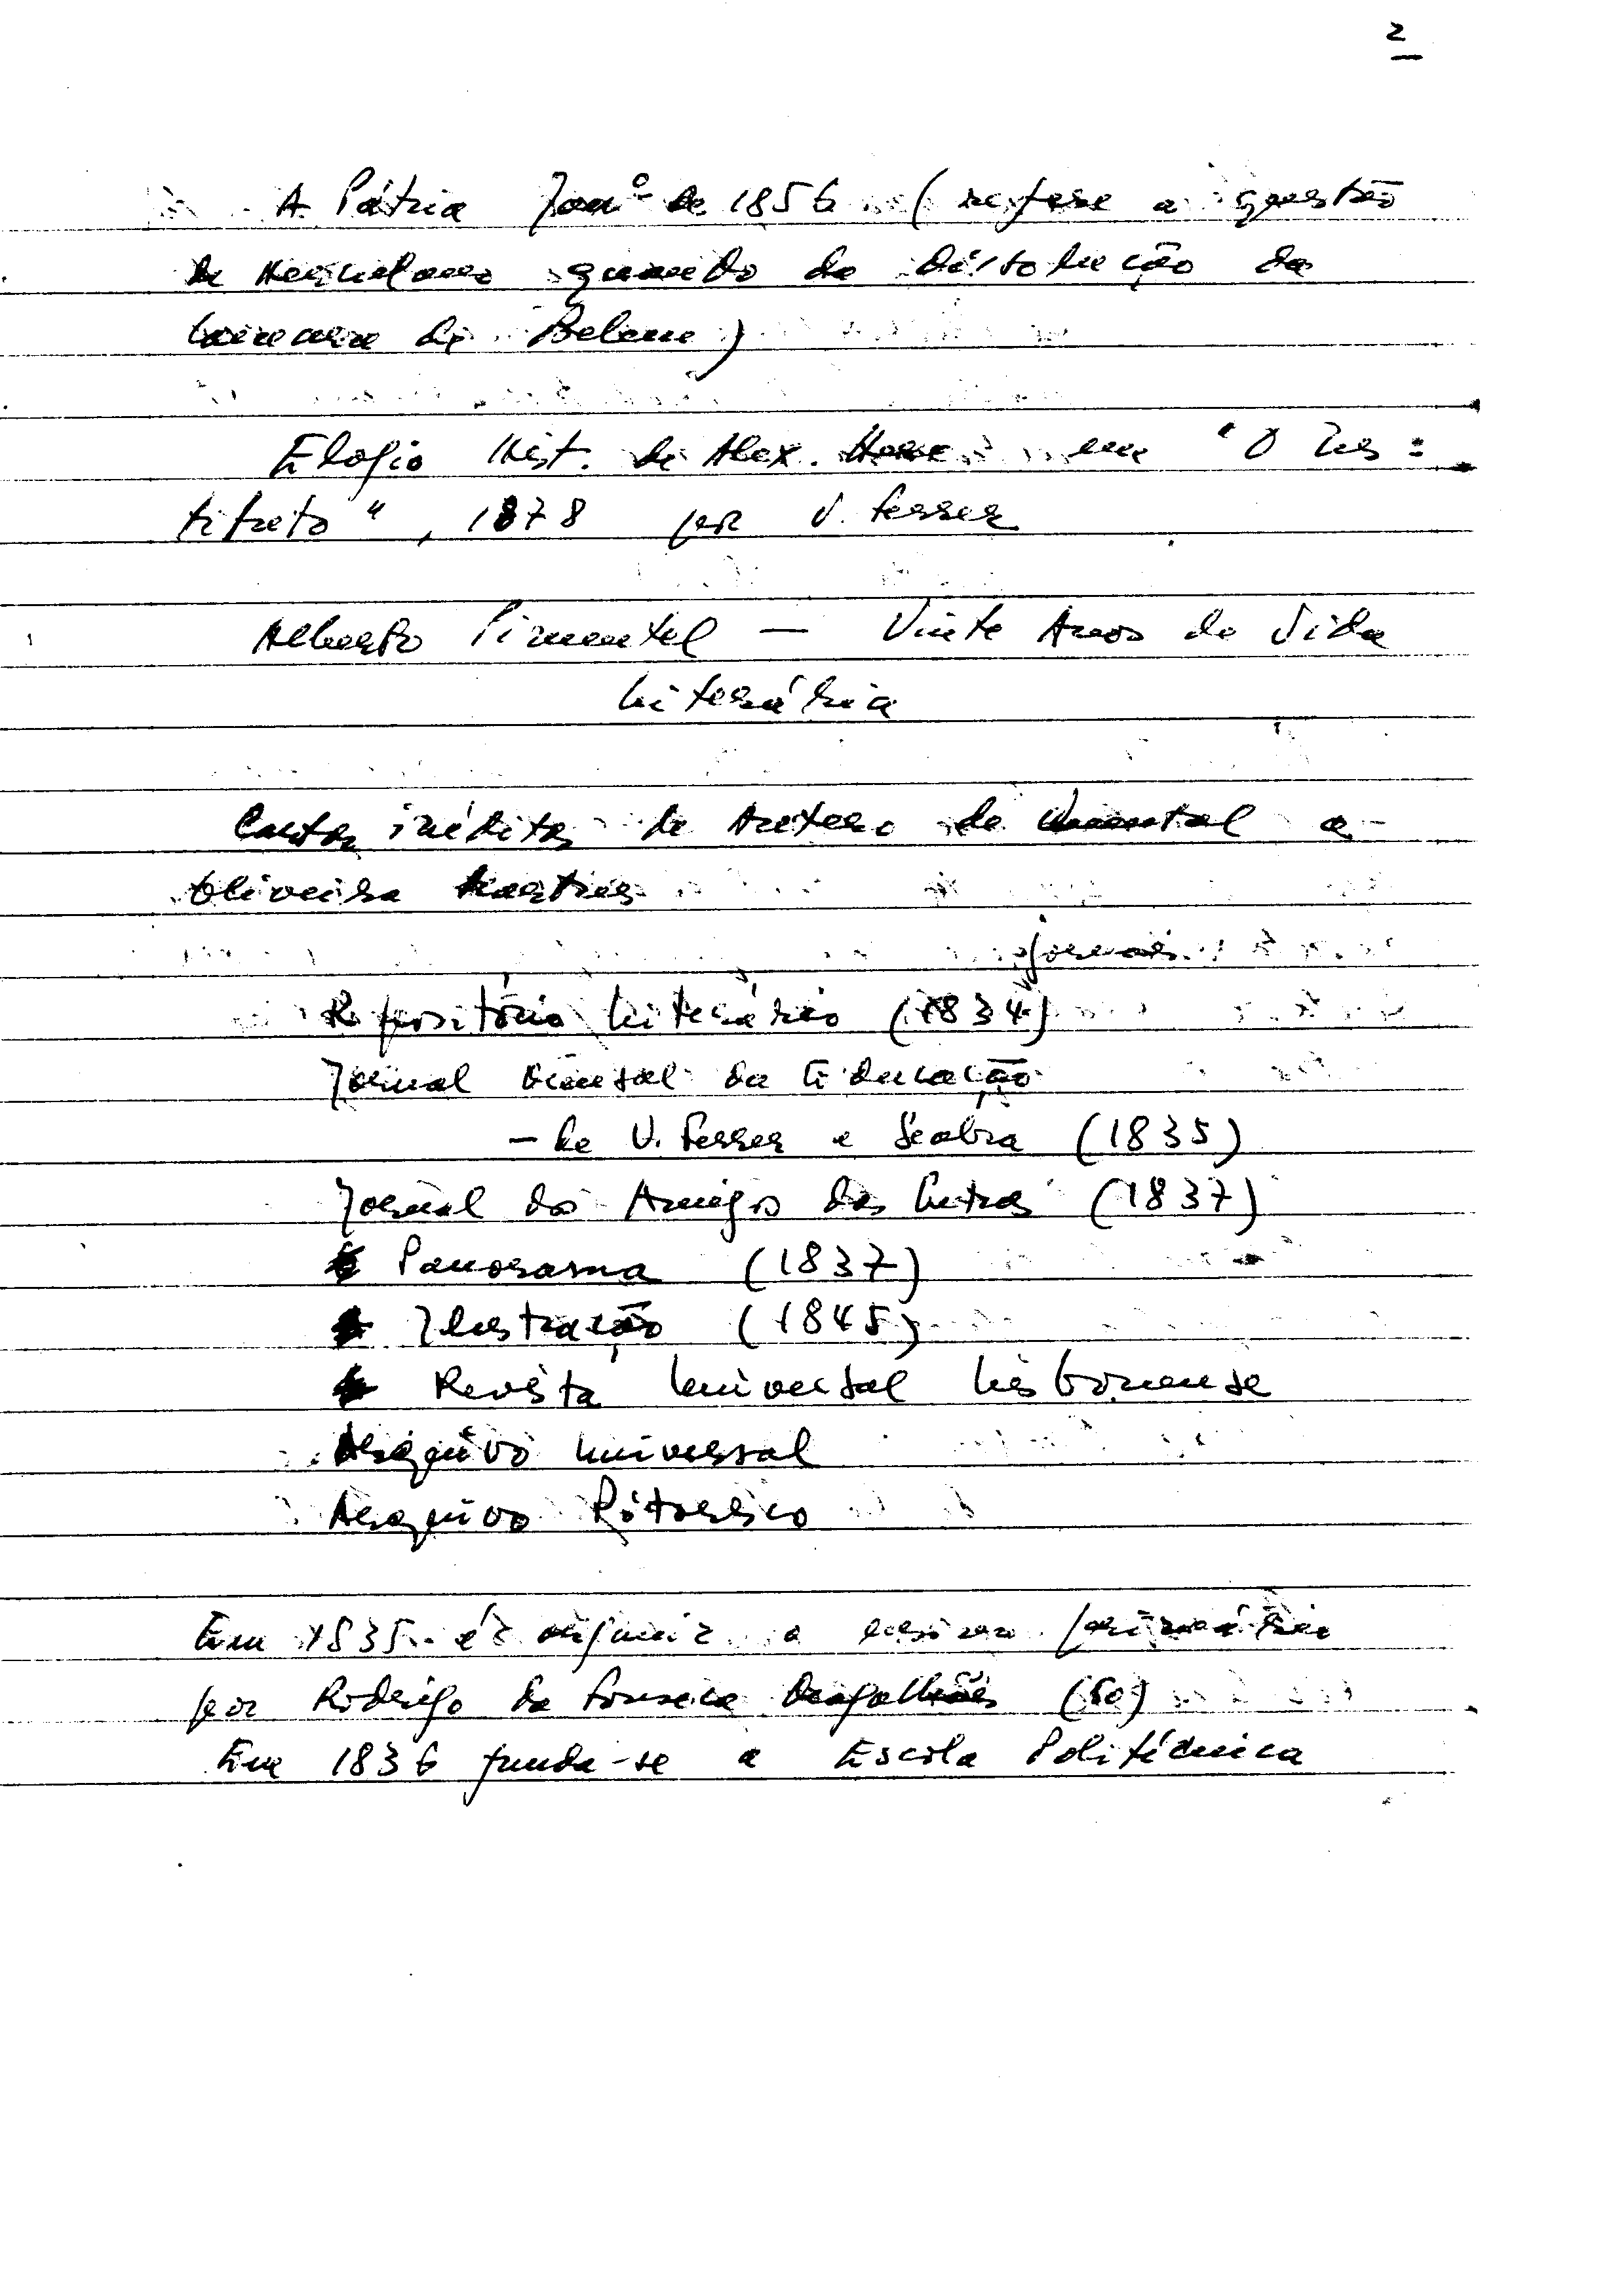 2
A Pátria Janº de 1856 (refere a questão
de Herculano quando da dissolução da
Câmara de Belem)
Elogio Hist. de Alex. Herc. em "O Ins=
tituto", 1878 por V. Ferrer
Alberto Pimentel — Vinte Anos de Vida
Literária
Cartas inéditas de Antero de Quental a
Oliveira Martins
jornais
Repositório Literário (1834)
Jornal Mensal da Educação
— de V. Ferrer e Seabra (1835)
Jornal dos Amigos das Letras (1837)
Panorama (1837)
Ilustração (1845)
Revista Universal Lisbonense
Arquivo Universal
Arquivo Pitoresco
Em 1835 organiz. o ensino primário
por Rodrigo da Fonseca Magalhães (50)
Em 1836 funda-se a Escola Politécnica